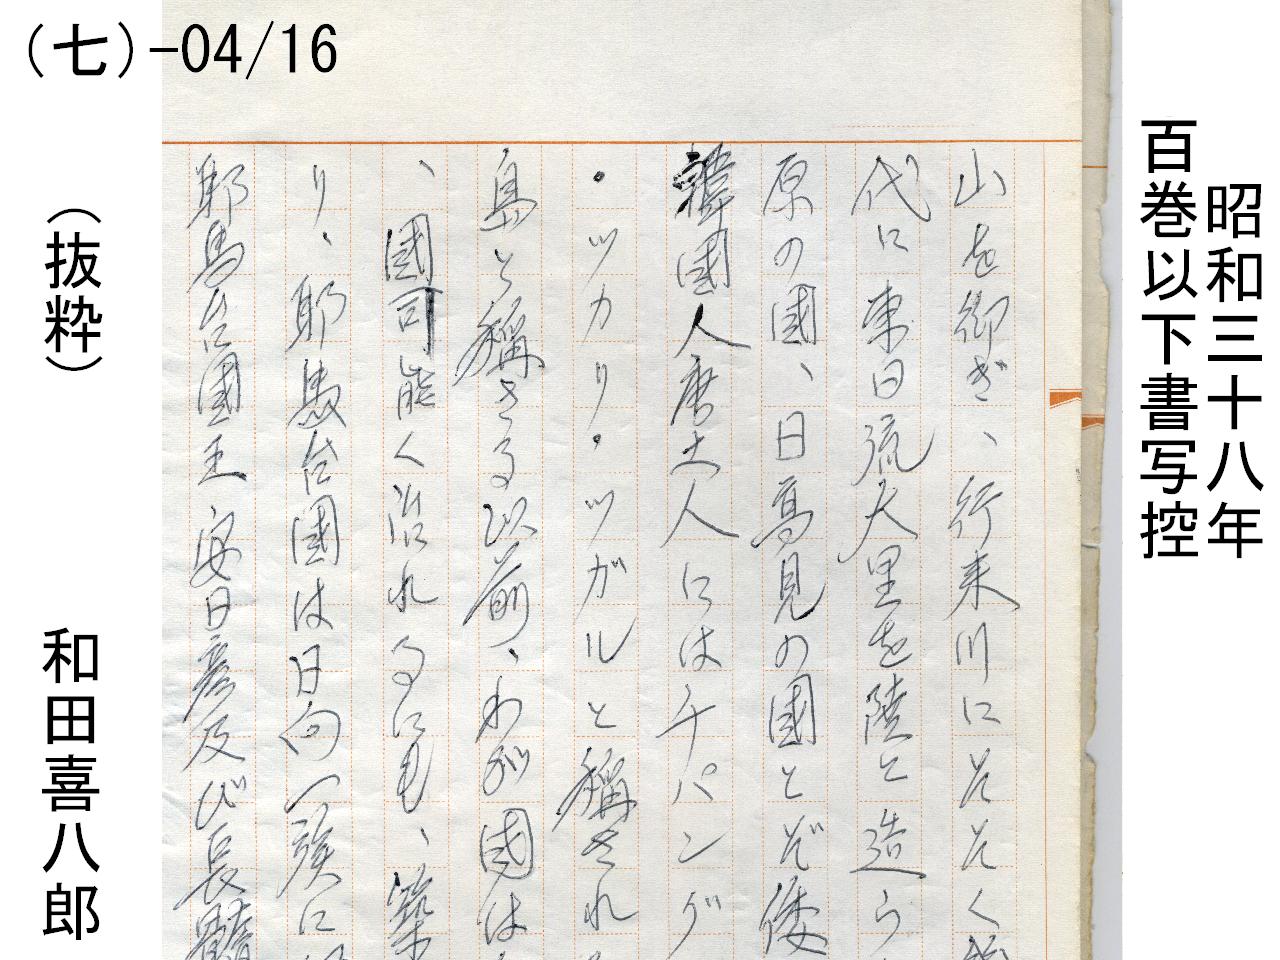 (七)-04/16
昭和三十八年
百巻以下書写控
山を御ぎ、行来川にそそく
代に東日流大里を陸と造ら
原の國、日高見の國とぞ倭
韓國人唐土人にはチパング
・ツカリ・ツガルと稱され
島と稱さる以前、わが國は
、國可能く治れるに見、築
り、耶馬台國は日向一族に
耶馬台國王安日彦及び長髓
(抜粋)
和田喜八郎